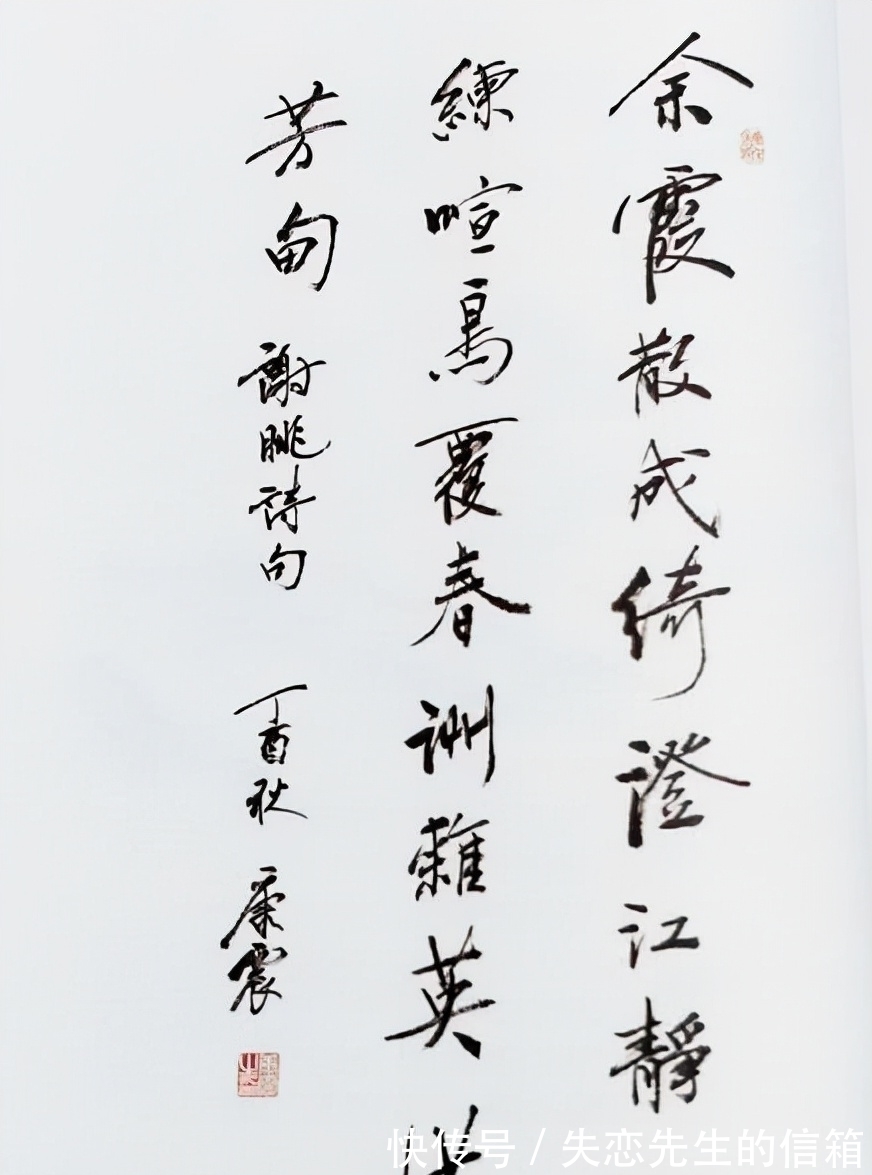 余霞散成绮澄江静
練喧鳥覆春洲雜英
芳甸
謝朓詩句
丁酉秋
康震
快传号 / 失恋先生的信箱